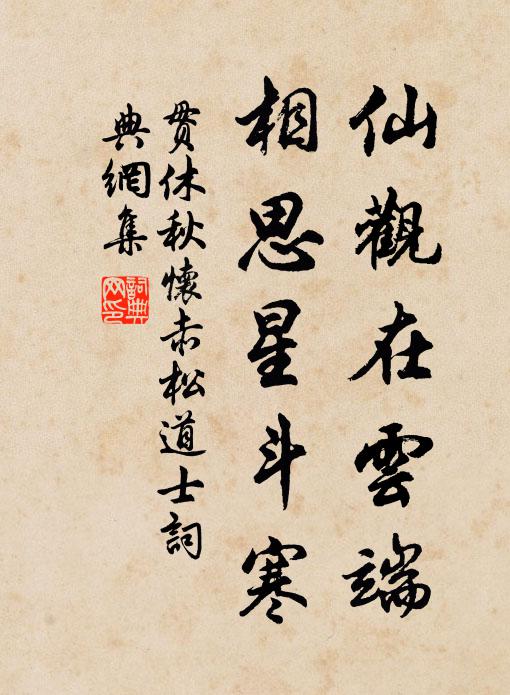 仙觀在雲端
相思星斗寒
貫休秋懷赤松道士詞
典網集
詞典
网印